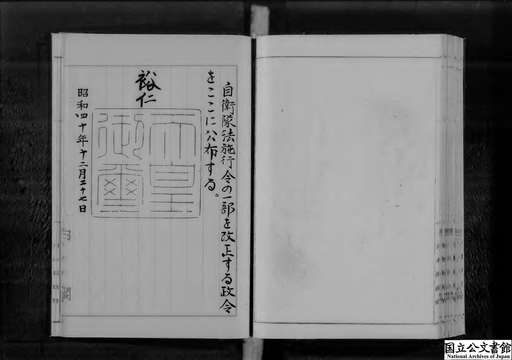 自衛隊法施行令の一部を改正する政令
をここに公布する。
裕仁
天皇
御璽
昭和四十年十二月二十七日
内閣
国立公文書館
National Archives of Japan